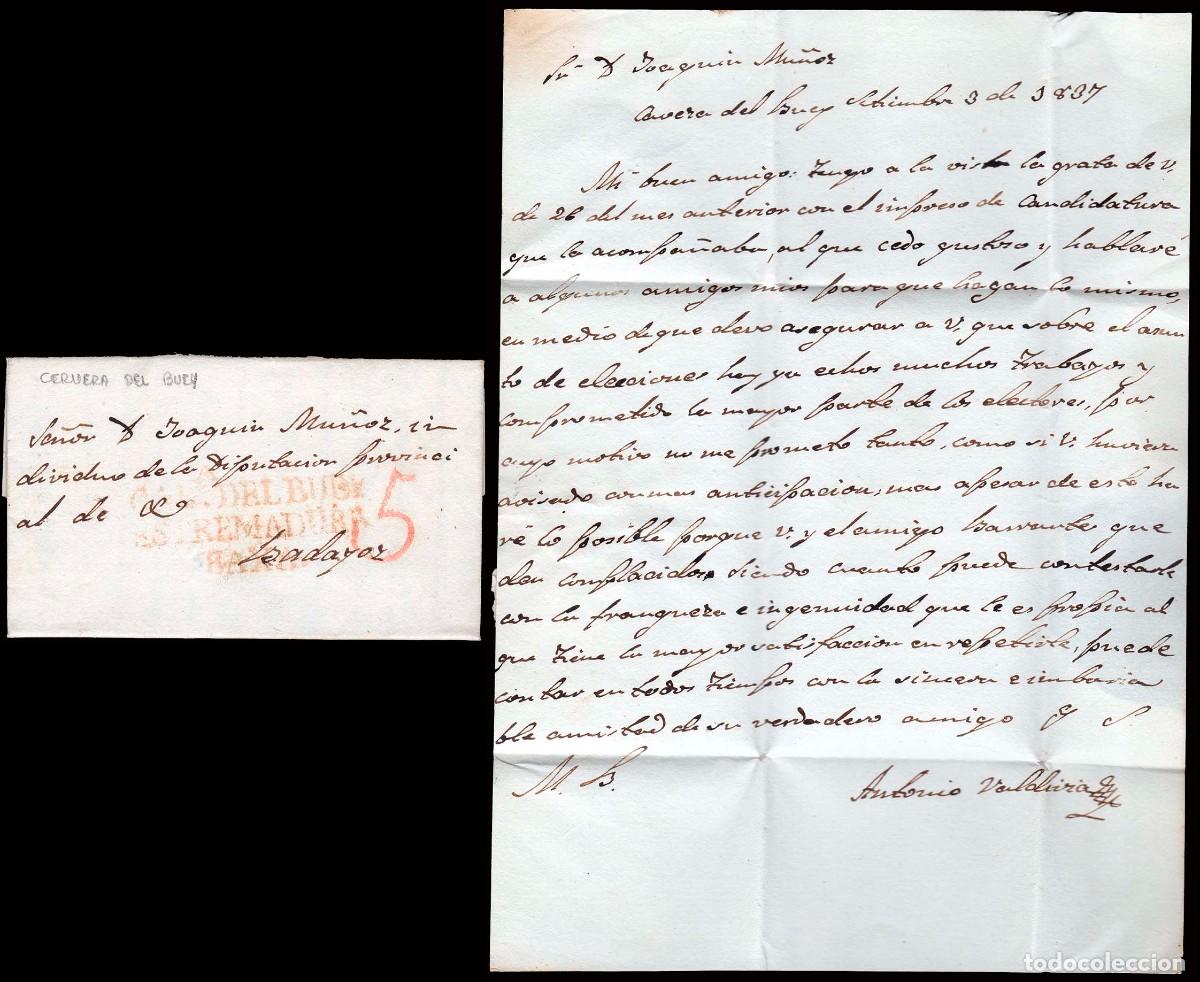 CERVERA DEL BUEY
Señor D Joaquin Muñoz, in
dividuo de la Diputacion provinci
al de &
Badajoz
DEL BUEY
ESTREMADURA
BAXA
15
Sr D Joaquin Muñoz
Caveza del Buey Setiembre 3 de 1837
Mi buen amigo: tengo a la vista la grata de V.
de 26 del mes anterior con el impreso de Candidatura
que la acompañaba, al que cedo gustoso y hablaré
a algunos amigos mios para que hagan lo mismo,
en medio de que devo asegurar a V. que sobre el asun
to de elecciones hay ya echos muchos trabajos y
comprometido la mayor parte de los electores, por
cuyo motivo no me prometo tanto, como si V. huviera
avisado con mas anticipacion, mas apesar de esto ha
ré lo posible porque V. y el amigo Barrante que
den complacidos siendo cuanto puede contestarle
con la franqueza e ingenuidad que le es propia al
que tiene la mayor satisfaccion en repetirle, puede
contar en todos tiempos con la sincera e imbaria
ble amistad de su verdadero amigo y S.
M. B.
Antonio Valdivia
todocoleccion